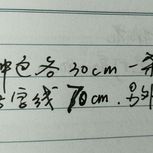 种包各30cm一
官线70cm.另外